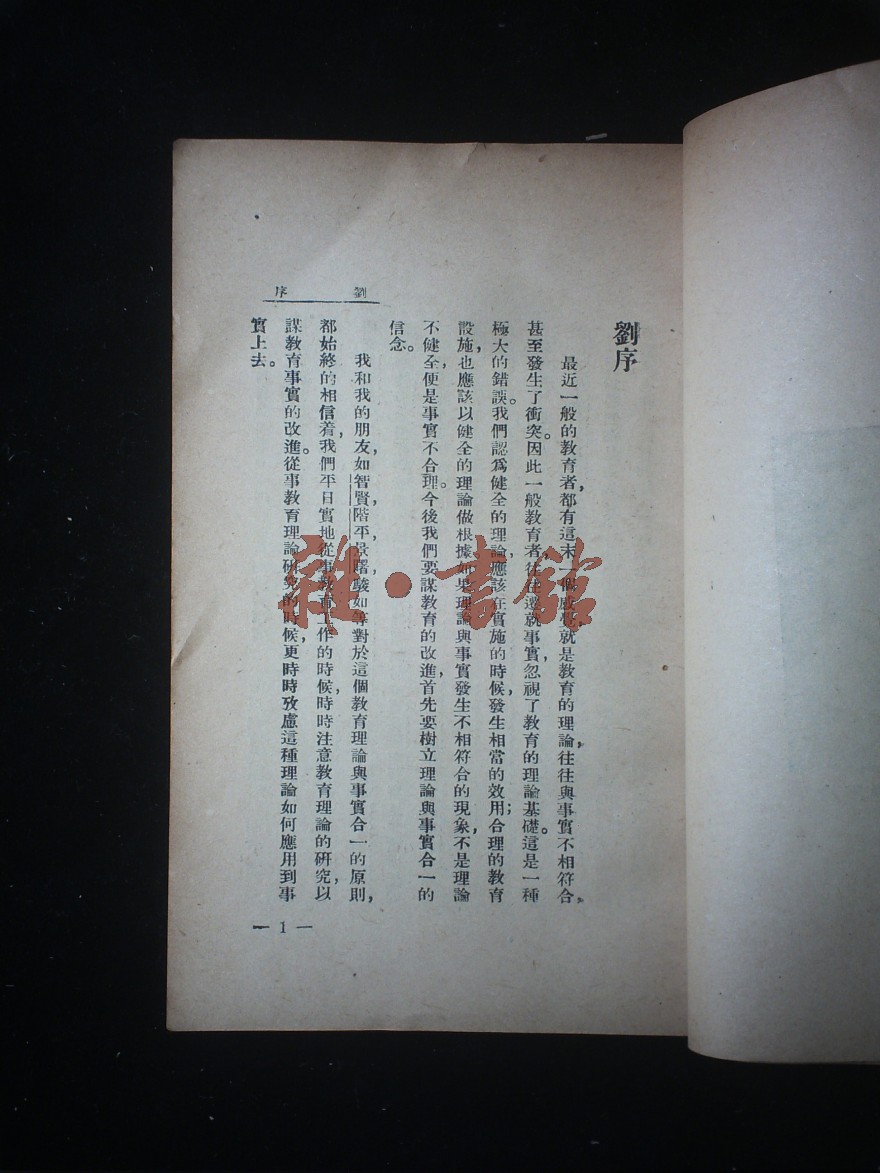 劉序
最近一般的教育者，都有這末一個感覺，就是教育的理論，往往與事實不相符合，
甚至發生了衝突。因此一般教育者，往往遷就事實，忽視了教育的理論基礎。這是一種
極大的錯誤。我們認爲健全的理論，應該在實施的時候，發生相當的效用；合理的教育
設施，也應該以健全的理論做根據。如果理論與事實發生不相符合的現象，不是理論
不健全，便是事實不合理。今後我們要謀教育的改進，首先要樹立理論與事實合一的
信念。
我和我的朋友，如智賢，階平，景曙，駿如等對於這個教育理論與事實合一的原則，
都始終的相信着，我們平日實地從事教育工作的時候，時時注意教育理論的研究，以
謀教育事實的改進。從事教育理論研究的時候，更時時攷慮這種理論如何應用到事
實上去。
劉序
— 1 —
雜·書館